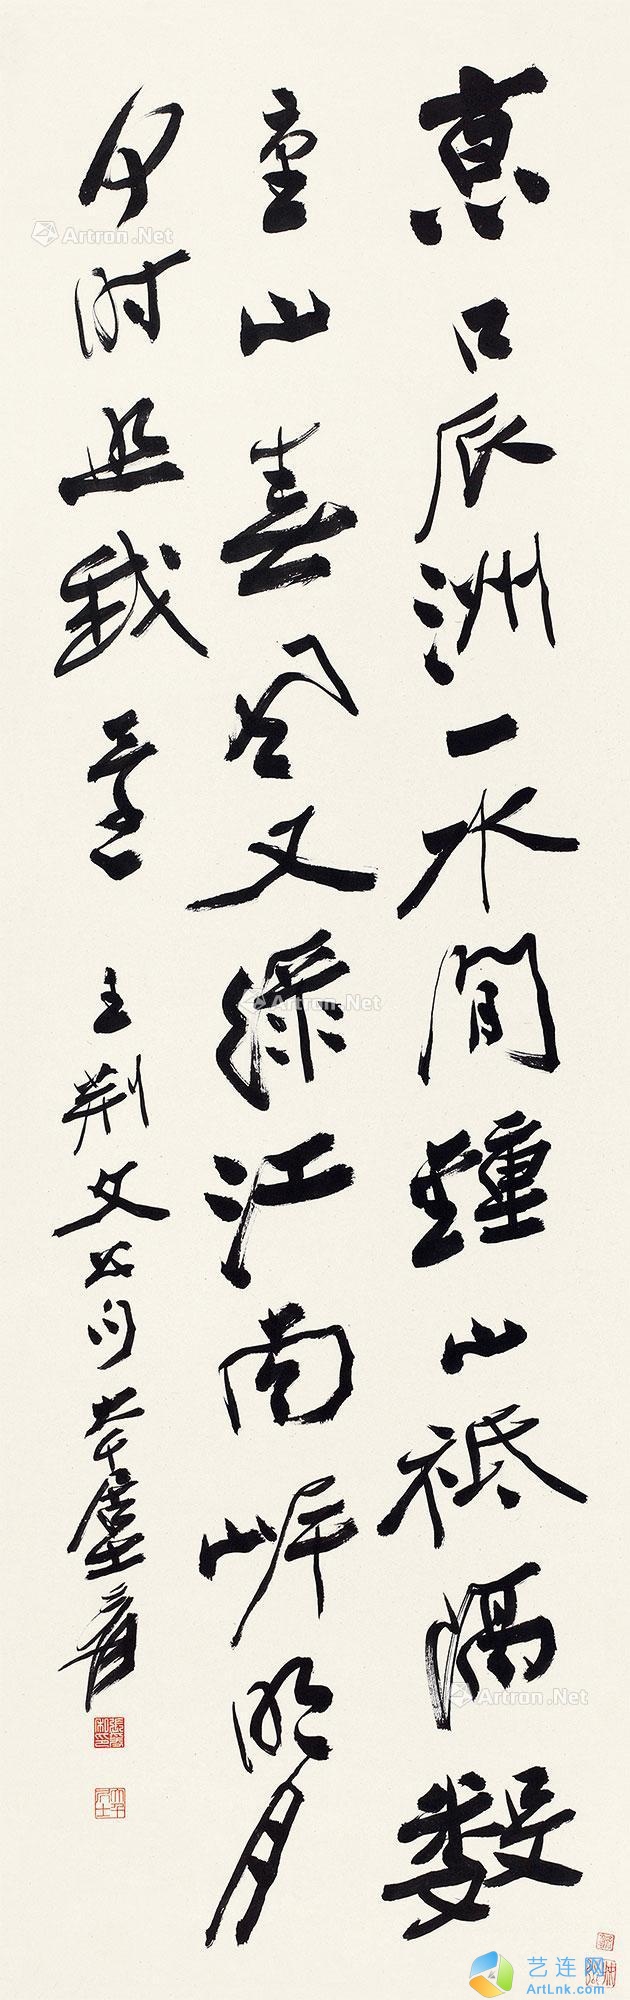 京口瓜洲一水間鍾山祗隔數
重山春風又綠江南岸明月
何時照我還
王荊文公句 大千居士爰
張爰私印
大千居士
Artron.Net
Artron.Net
Artron.Net
艺连网
ArtLnk.com